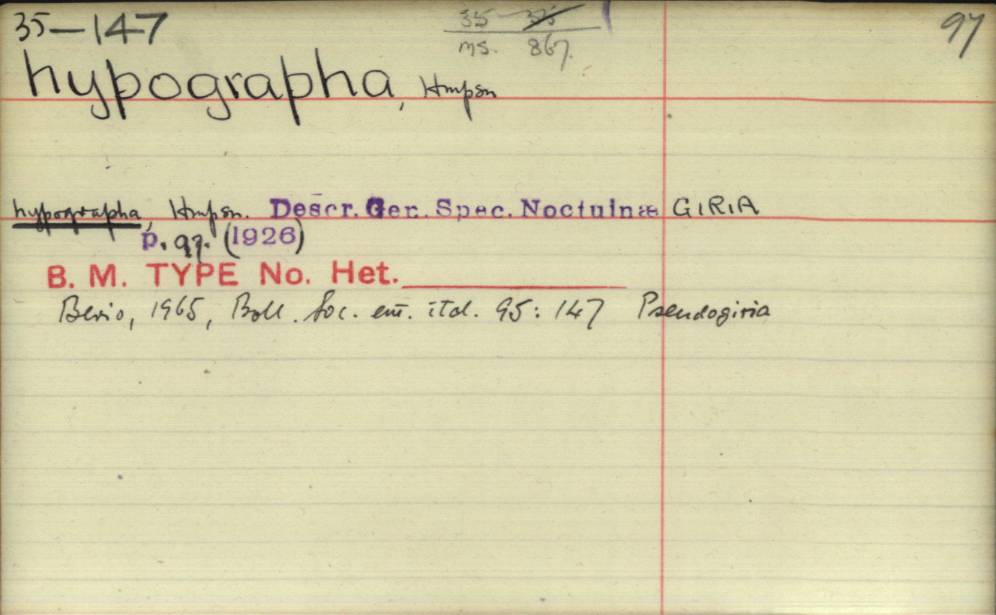 35-147
35
ms. 867.
97
hypographa, Hmpsn
hypographa, Hmpsn. Descr. Gen. Spec. Noctuinæ GIRIA
p. 97. (1926)
B. M. TYPE No. Het.
Berio, 1965, Boll. Soc. ent. ital. 95: 147 Pseudogiria